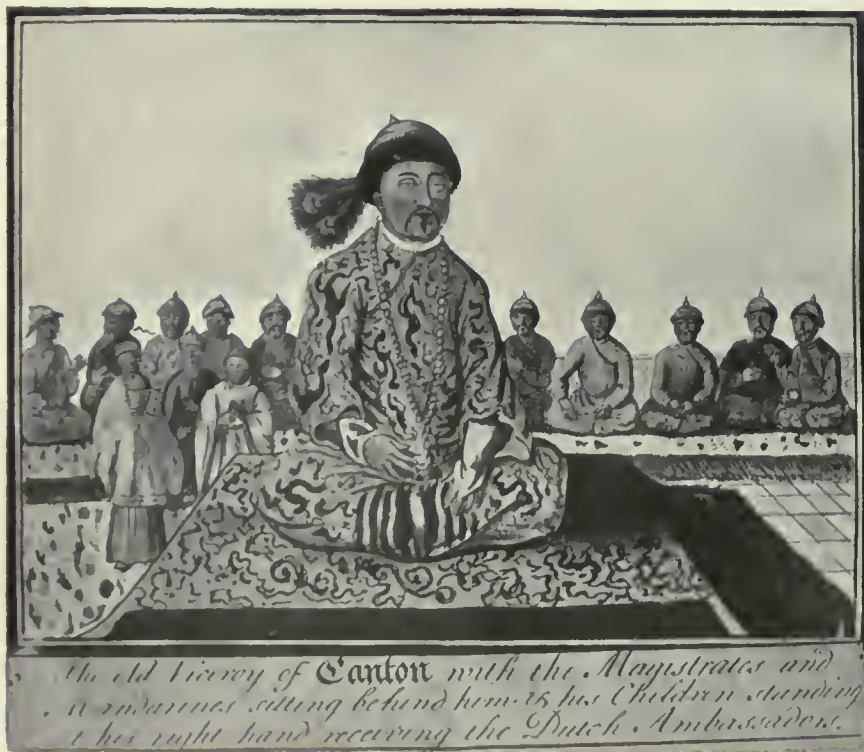 the old Viceroy of Canton with the Magistrates and
sitting behind him & his Children standing
his right hand receiving the Dutch Ambassadors.